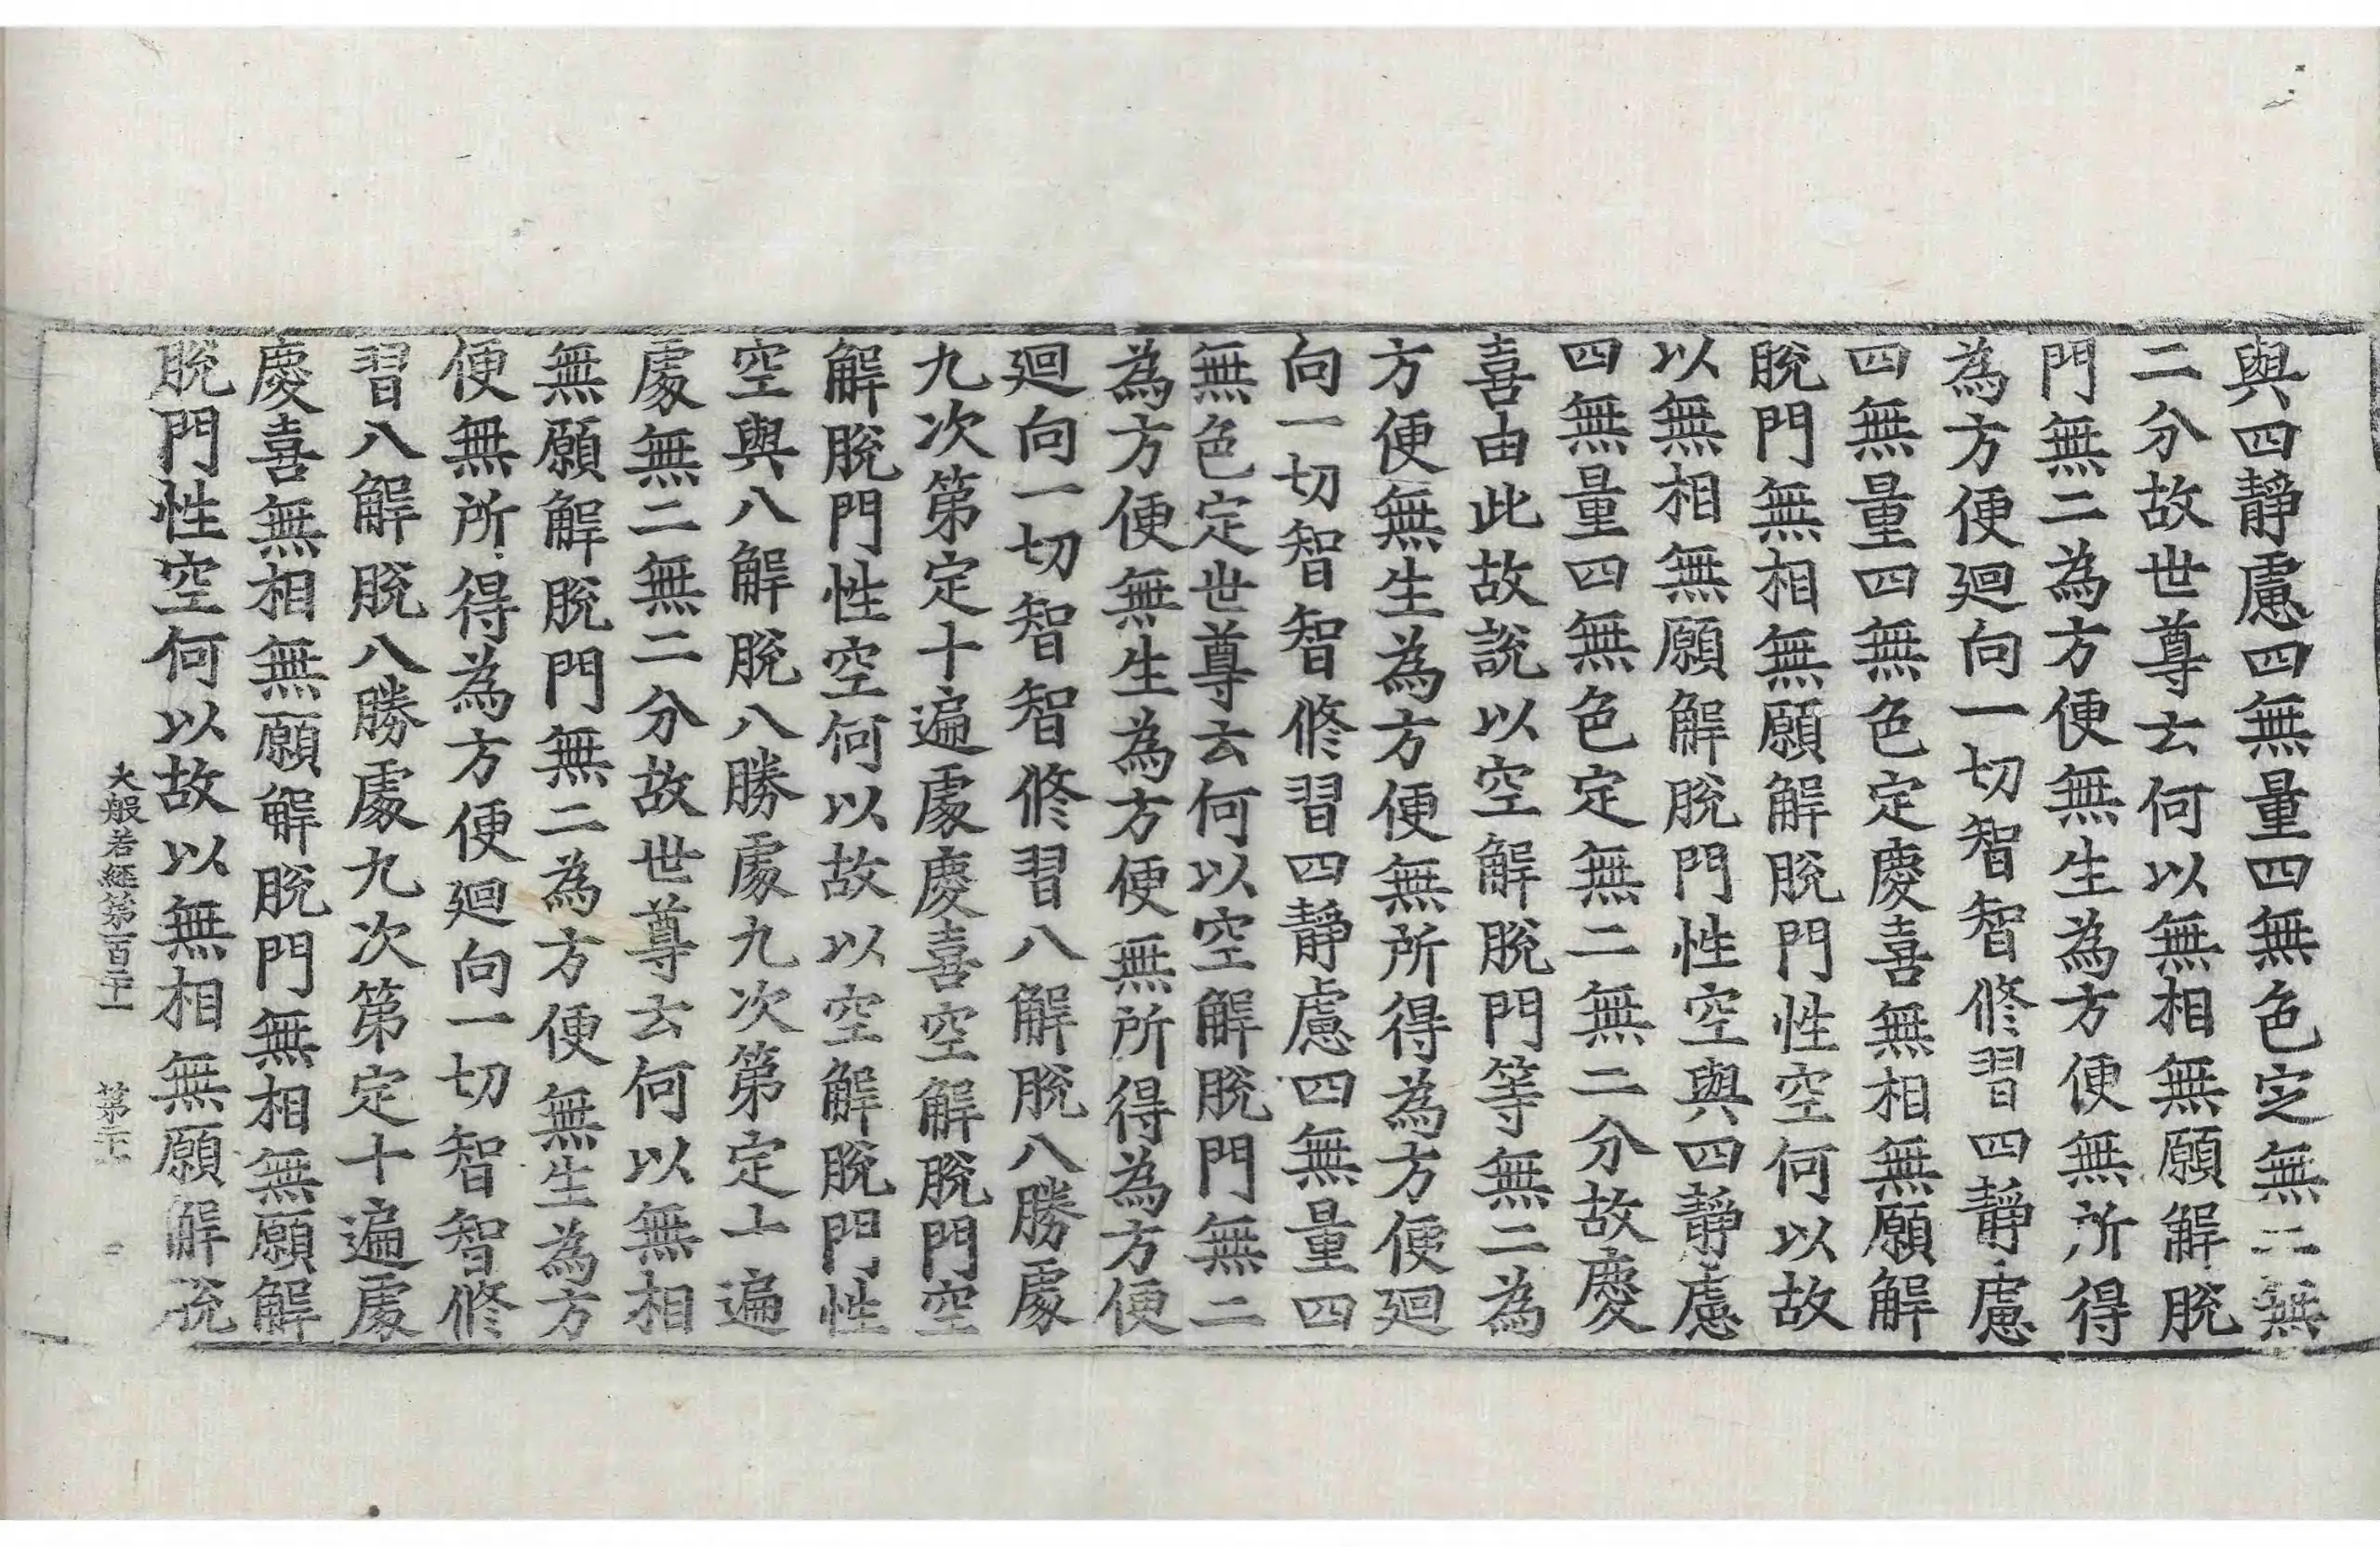 與四靜慮四無量四無色定無二無
二分故世尊云何以無相無願解脫
門無二為方便無生為方便無所得
為方便廻向一切智智修習四靜慮
四無量四無色定慶喜無相無願解
脫門無相無願解脫門性空何以故
以無相無願解脫門性空與四靜慮
四無量四無色定無二無二分故慶
喜由此故說以空解脫門等無二為
方便無生為方便無所得為方便廻
向一切智智修習四靜慮四無量四
無色定世尊云何以空解脫門無二
為方便無生為方便無所得為方便
廻向一切智智修習八解脫八勝處
九次第定十遍處慶喜空解脫門空
解脫門性空何以故以空解脫門性
空與八解脫八勝處九次第定十遍
處無二無二分故世尊云何以無相
無願解脫門無二為方便無生為方
便無所得為方便廻向一切智智修
習八解脫八勝處九次第定十遍處
慶喜無相無願解脫門無相無願解
脫門性空何以故以無相無願解脫
大般若經第一百二十一